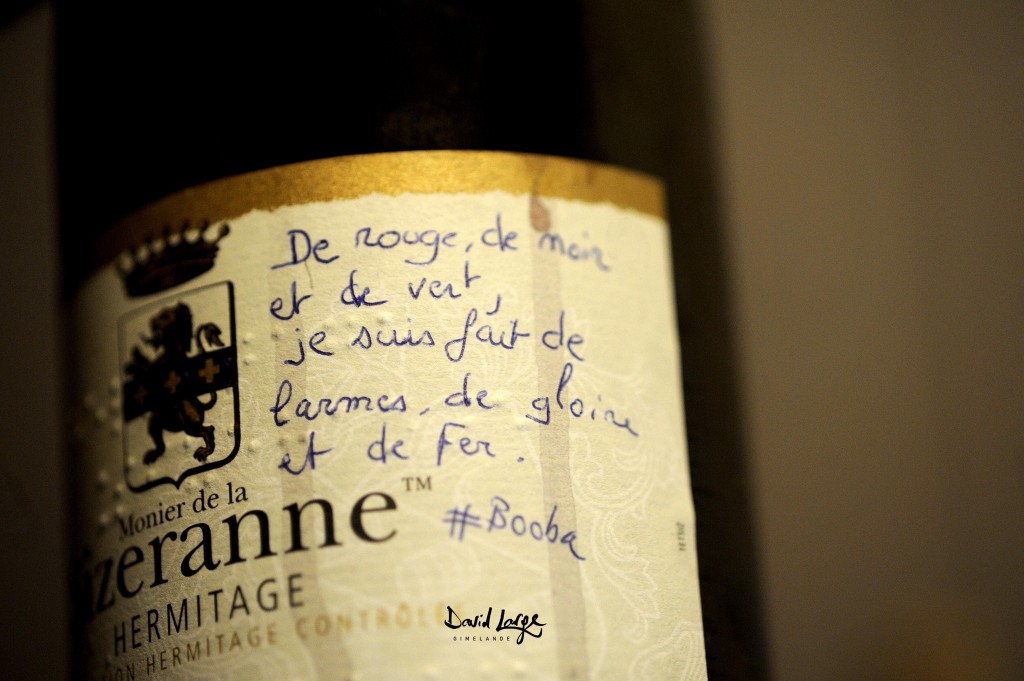 De rouge, de noir
et de vert,
je suis fait de
larmes, de gloire
et de Fer.
#Booba
Monier de la
izeranne™
HERMITAGE
ON HERMITAGE CONTRÔLÉ
David Large
GIMELANDE